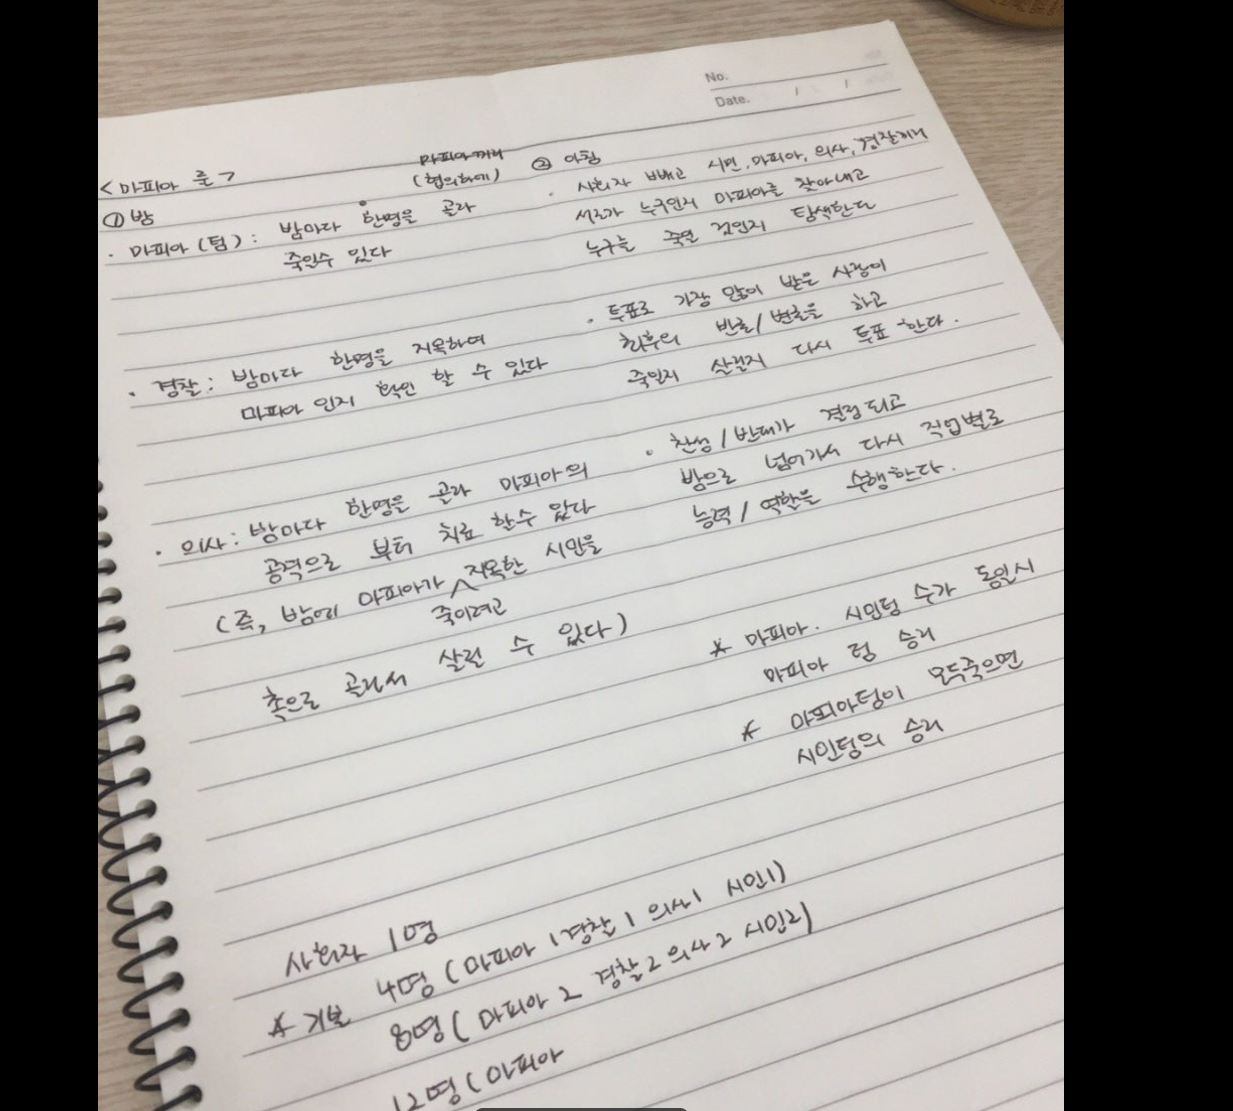 No.
Date. / /
<마피아 룰>
① 밤
마피아끼리
(협의하에)
· 마피아(팀) : 밤마다 한명을 골라
죽일수 있다
· 경찰 : 밤마다 한명을 지목하여
마피아 인지 확인 할 수 있다
· 의사 : 밤마다 한명을 골라 마피아의
공격으로 부터 치료 할수 있다
(즉, 밤에 마피아가 지목한 시민을
죽이려고
촉으로 골라서 살릴 수 있다)
② 아침
· 사회자 빼고 시민, 마피아, 의사, 경찰끼리
서로가 누구인지 마피아를 찾아내고
누구를 죽일 것인지 탐색한다
· 투표로 가장 많이 받은 사람이
최후의 반론/변호를 하고
죽일지 살릴지 다시 투표 한다.
· 찬성/반대가 결정되고
밤으로 넘어가서 다시 직업별로
능력/역할을 수행한다.
* 마피아. 시민팀 수가 동일시
마피아 팀 승리
* 마피아팀이 모두죽으면
시민팀의 승리
사회자 1명
* 기본 4명 (마피아 1 경찰 1 의사 1 시민1)
8명 (마피아 2 경찰2 의사 2 시민2)
12명 (마피아